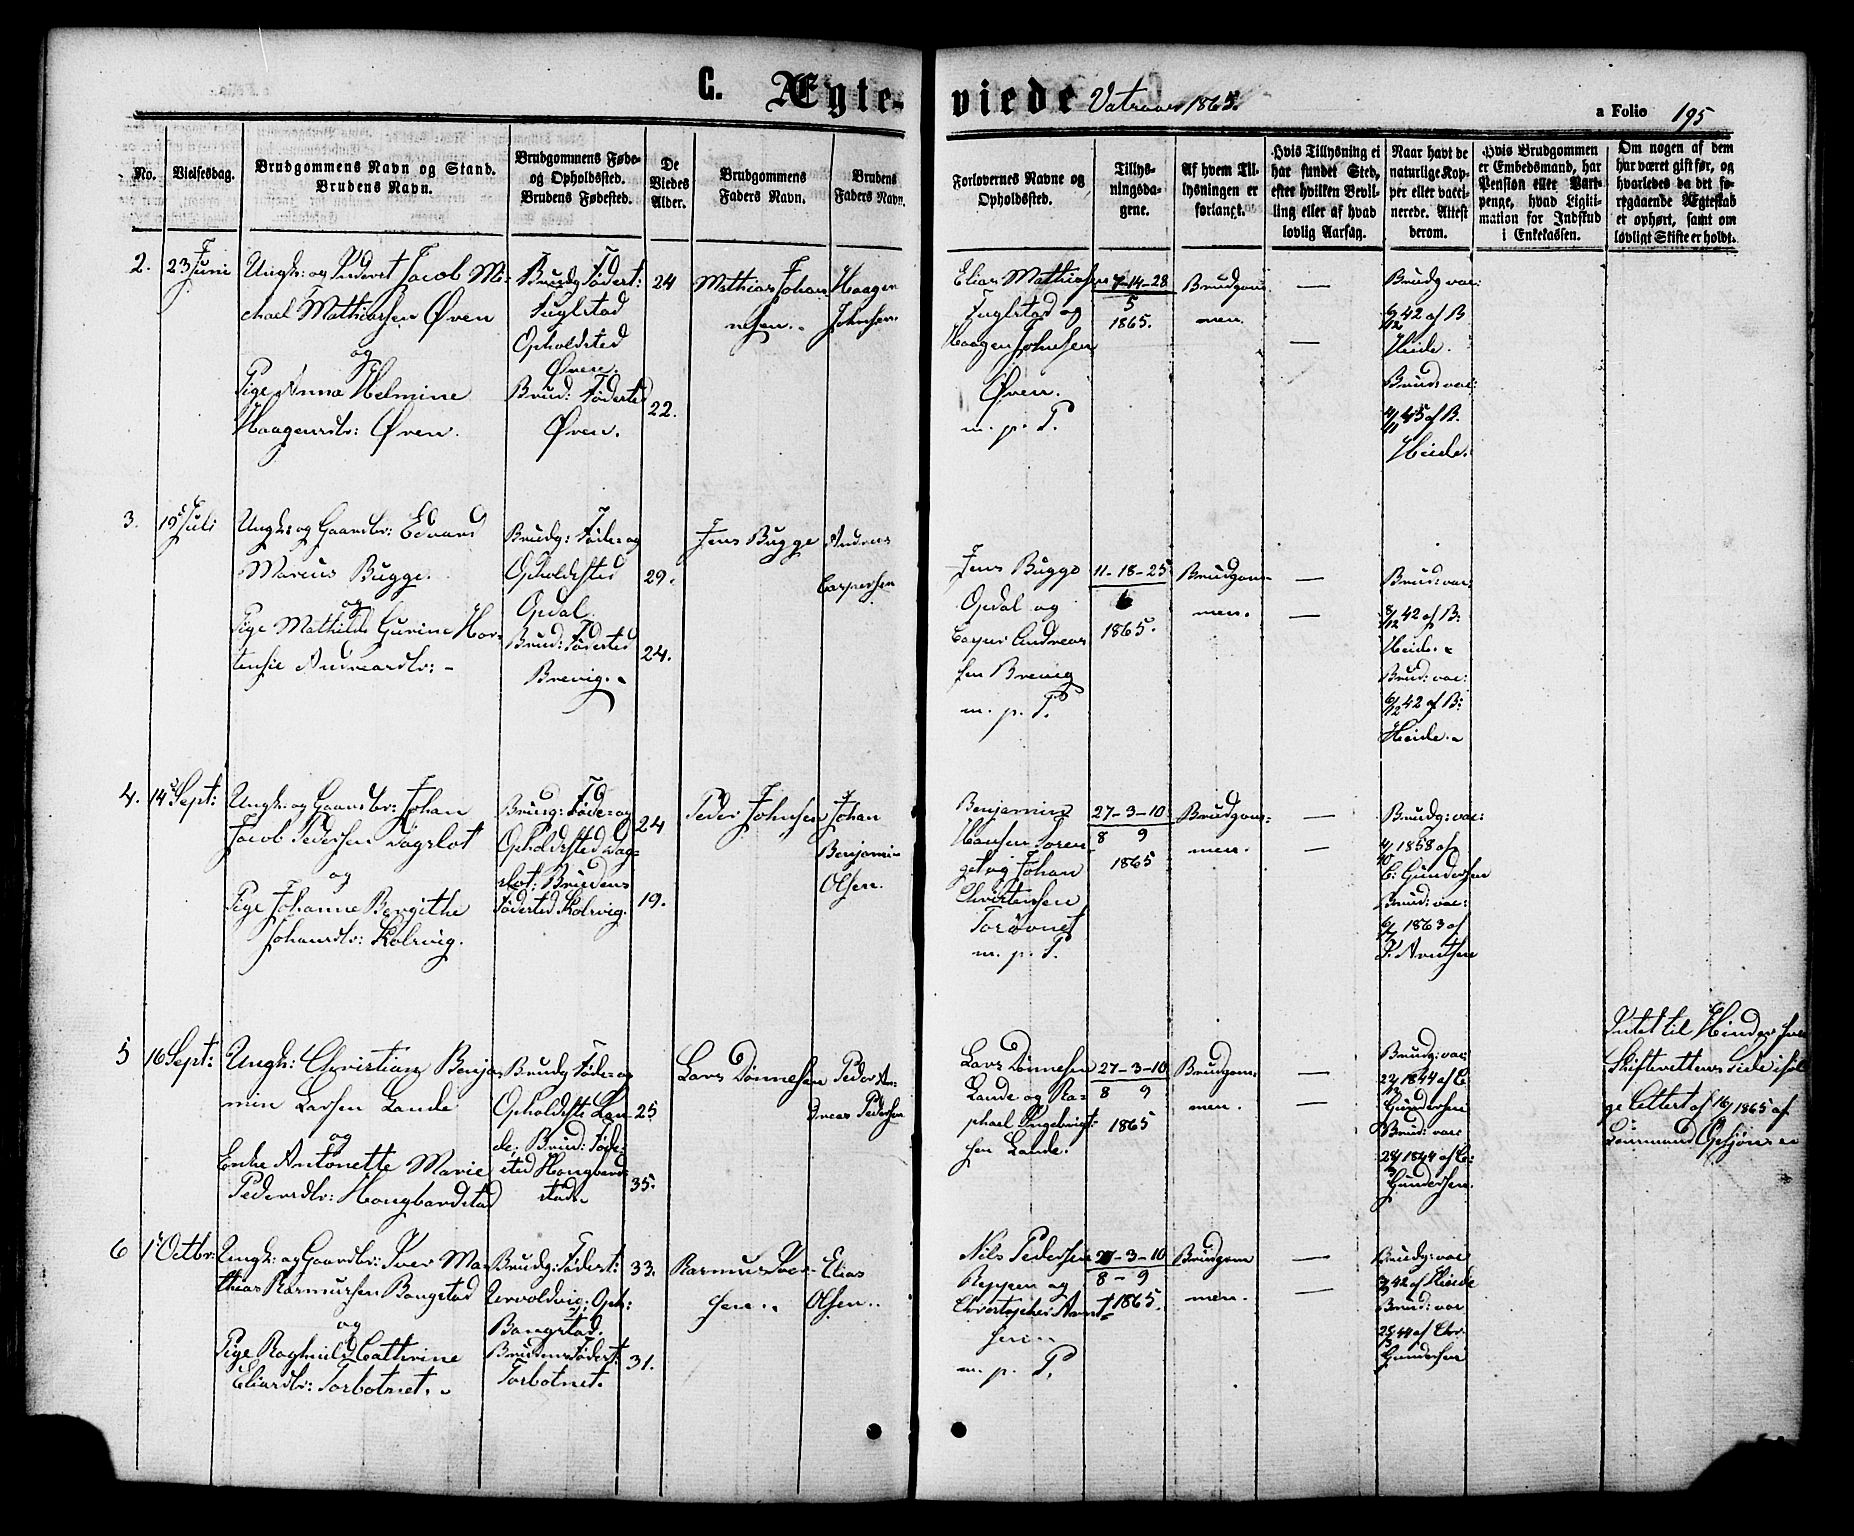 C. Ægte-
viede Vatraas 1865.
a Folio 195
No.
Vielsesdag.
Brudgommens Navn og Stand.
Brudens Navn.
Brudgommens Føde-
og Opholdssted.
Brudens Fødested.
De
Viedes
Alder.
Brudgommens
Faders Navn.
Brudens
Faders Navn.
Forlovernes Navne og
Opholdssted.
Tillys-
ningsda-
gene.
Af hvem Til-
lysningen er
forlangt.
Hvis Tillysning ei
har fundet Sted,
efter hvilken Bevil-
ling eller af hvad
lovlig Aarsag.
Naar havt de
naturlige Kop-
per eller vacci-
nerede. Attest
derom.
Hvis Brudgommen
er Embedsmand, har
Pension eller Vart-
penge, hvad Ligiti-
mation for Indskud
i Enkekassen.
Om nogen af dem
har været gift før, og
hvorledes da det fo-
regaaende Ægteskab
er ophørt, samt om
lovligt Skifte er holdt.
2.
23 Juni
Ungk: og Jacob Mi-
chael Mathiassen Øven
og
Pige Anna Helmine
Haagensdtr: Øven.
Brudg: Fødest:
Fuglstad
Opholdsted
Øven.
Brud: Fødested
Øven.
24
22.
Mathias Johan-
nesen.
Haagen
Johnsen.
Elias Mathiassen
Fuglstad og
Haagen Johnsen
Øven.
m. p. P.
7-14-28
5
1865.
Brudgom-
men.
—
—
Brudg vac:
6/12 42 af B
Heide.
Brud: vac:
4/11 45 af B.
Heide.
3.
19 Juli
Ungk: og Gaardbr: Edvard
Marius Bugge.
og
Pige Mathilde Gurine Hor-
tensie Andreasdtr:
Brudg: Føde- og
Opholdsted
Opdal.
Brud: Fødested
Brevig.
29.
24.
Jens Bugge
Andreas
Caspersen
Jens Bugge
Opdal og
Casper Andreas-
sen Brevig
m. p. P.
11-18-25
6
1865.
Brudgom-
men.
—
—
Brud: vac:
8/12 42 af B:
Heide.
Brud: vac:
6/12 42 af B:
Heide.
4.
14 Sept:
Ungk: og Gaardbr: Johan
Jacob Pedersen Dagslot
og
Pige Johanne Bergithe
Johansdtr: Kolvig.
Brudg: Føde- og
Opholdsted Dag-
slot: Brudens
Fødested Kolvig.
24
19.
Peder Johnsen
Johan
Benjamin
Olsen.
Benjamin
Hansen Toren-
get og Johan
Christensen
Torøvnet
m. p. P.
27-3-10
8 9
1865
Brudgom-
men.
—
—
Brudg: vac:
4/10 1858 af
C: Gundersen
Brud: vac:
1863 af
P. Arntsen
5
16 Sept:
Ungk: Christian Benja-
min Larsen Lande
og
Enke Antonette Marie
Pedersdtr: Hongbardstad
Brudg Føde- og
Opholdste Lan-
de, Brud: Føde-
sted Hongbard-
stad
25
35.
Lars Dønnesen
Peder An-
dreas Pedersen
Lars Dønnesen
Lande og Ra-
phael Ingebrigt-
sen Lande.
27-3-10
8 9
1865
Brudgom-
men.
—
—
Brudg: vac:
1844 af C:
Gundersen
Brud: vac
1844 af C:
Gundersen.
Intet til Hinder fra
Skifterettens Side iføl
ge Attest af 16/9 1865 af
6
1 Octbr:
Ungk: og Gaardbr: Iver Ma-
thias Rasmussen Bangstad
og
Pige Raghnild Cathrine
Eliasdtr: Torbotnet.
Brudg: Fødest:
Urvoldvig; Oph:
Bangstad.
Brudens Fødest:
Torbotnet.
33.
31.
Rasmus Iver-
sen
Elias
Olsen
Nils Pedersen
Reppen og
Christopher Arnt-
sen
m. p. P.
27-3-10
8-9
1865.
Brudgom
men.
—
—
Brudg: vac
42 af Heide
Brud: vac
44 af Chr
Gundersen